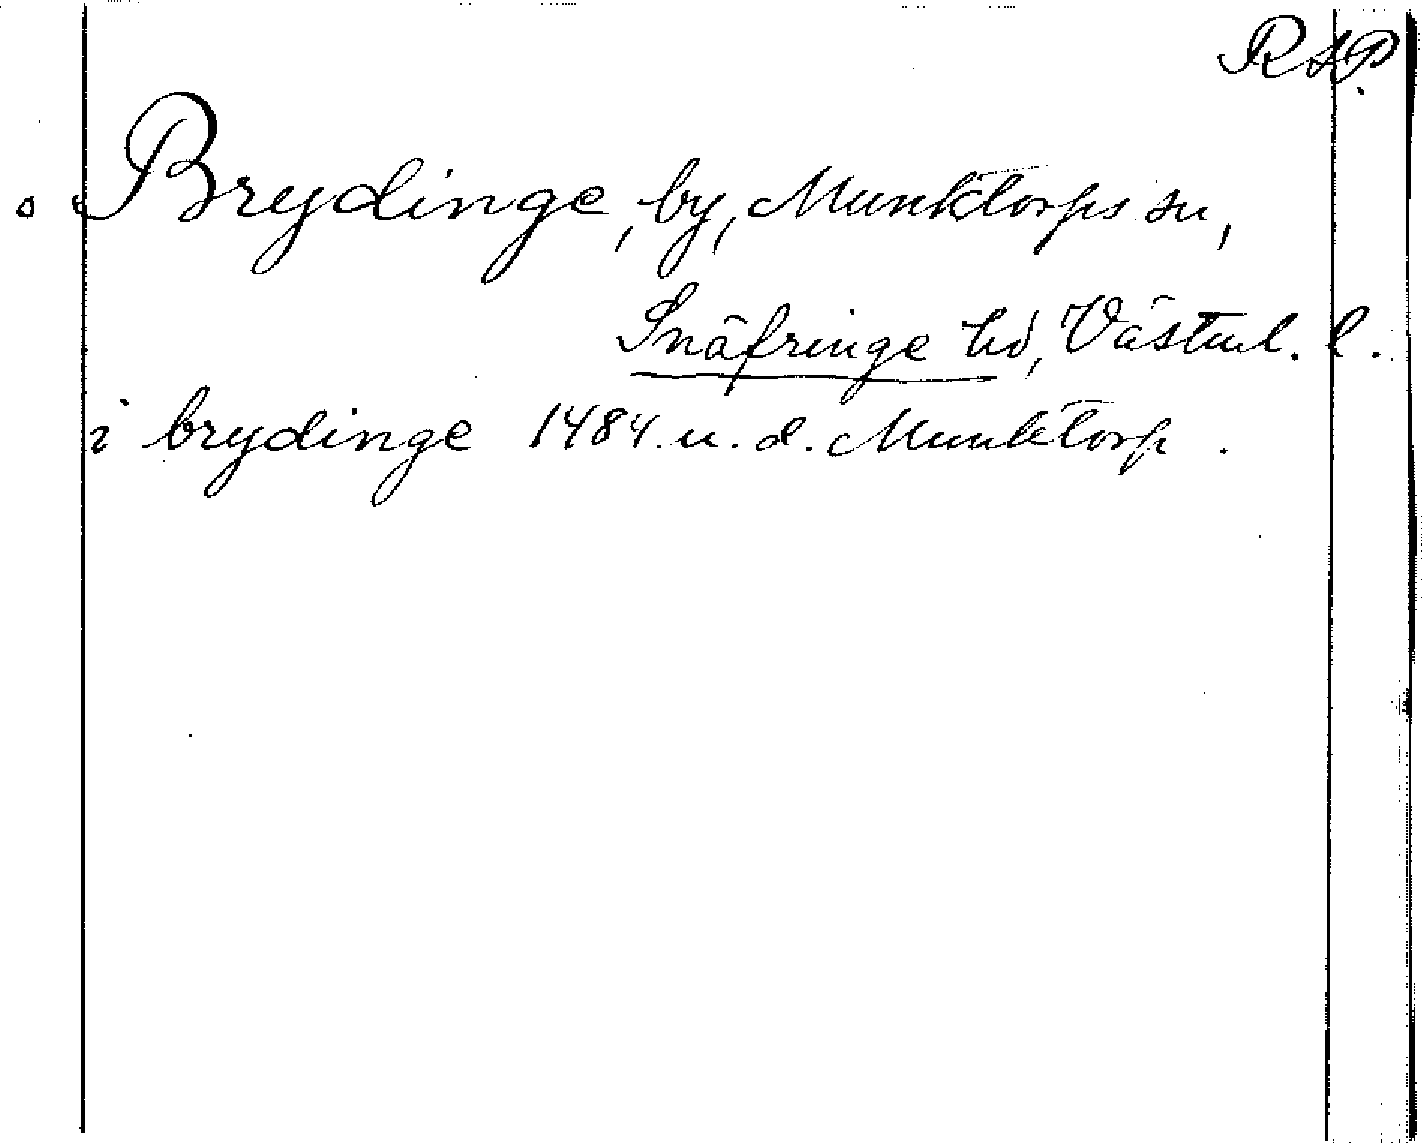 RAP.
Brydinge, by, Munktorps sn,
Snäfringe hd, Västml. l.
i brydinge 1484 u. d. Munktorp.